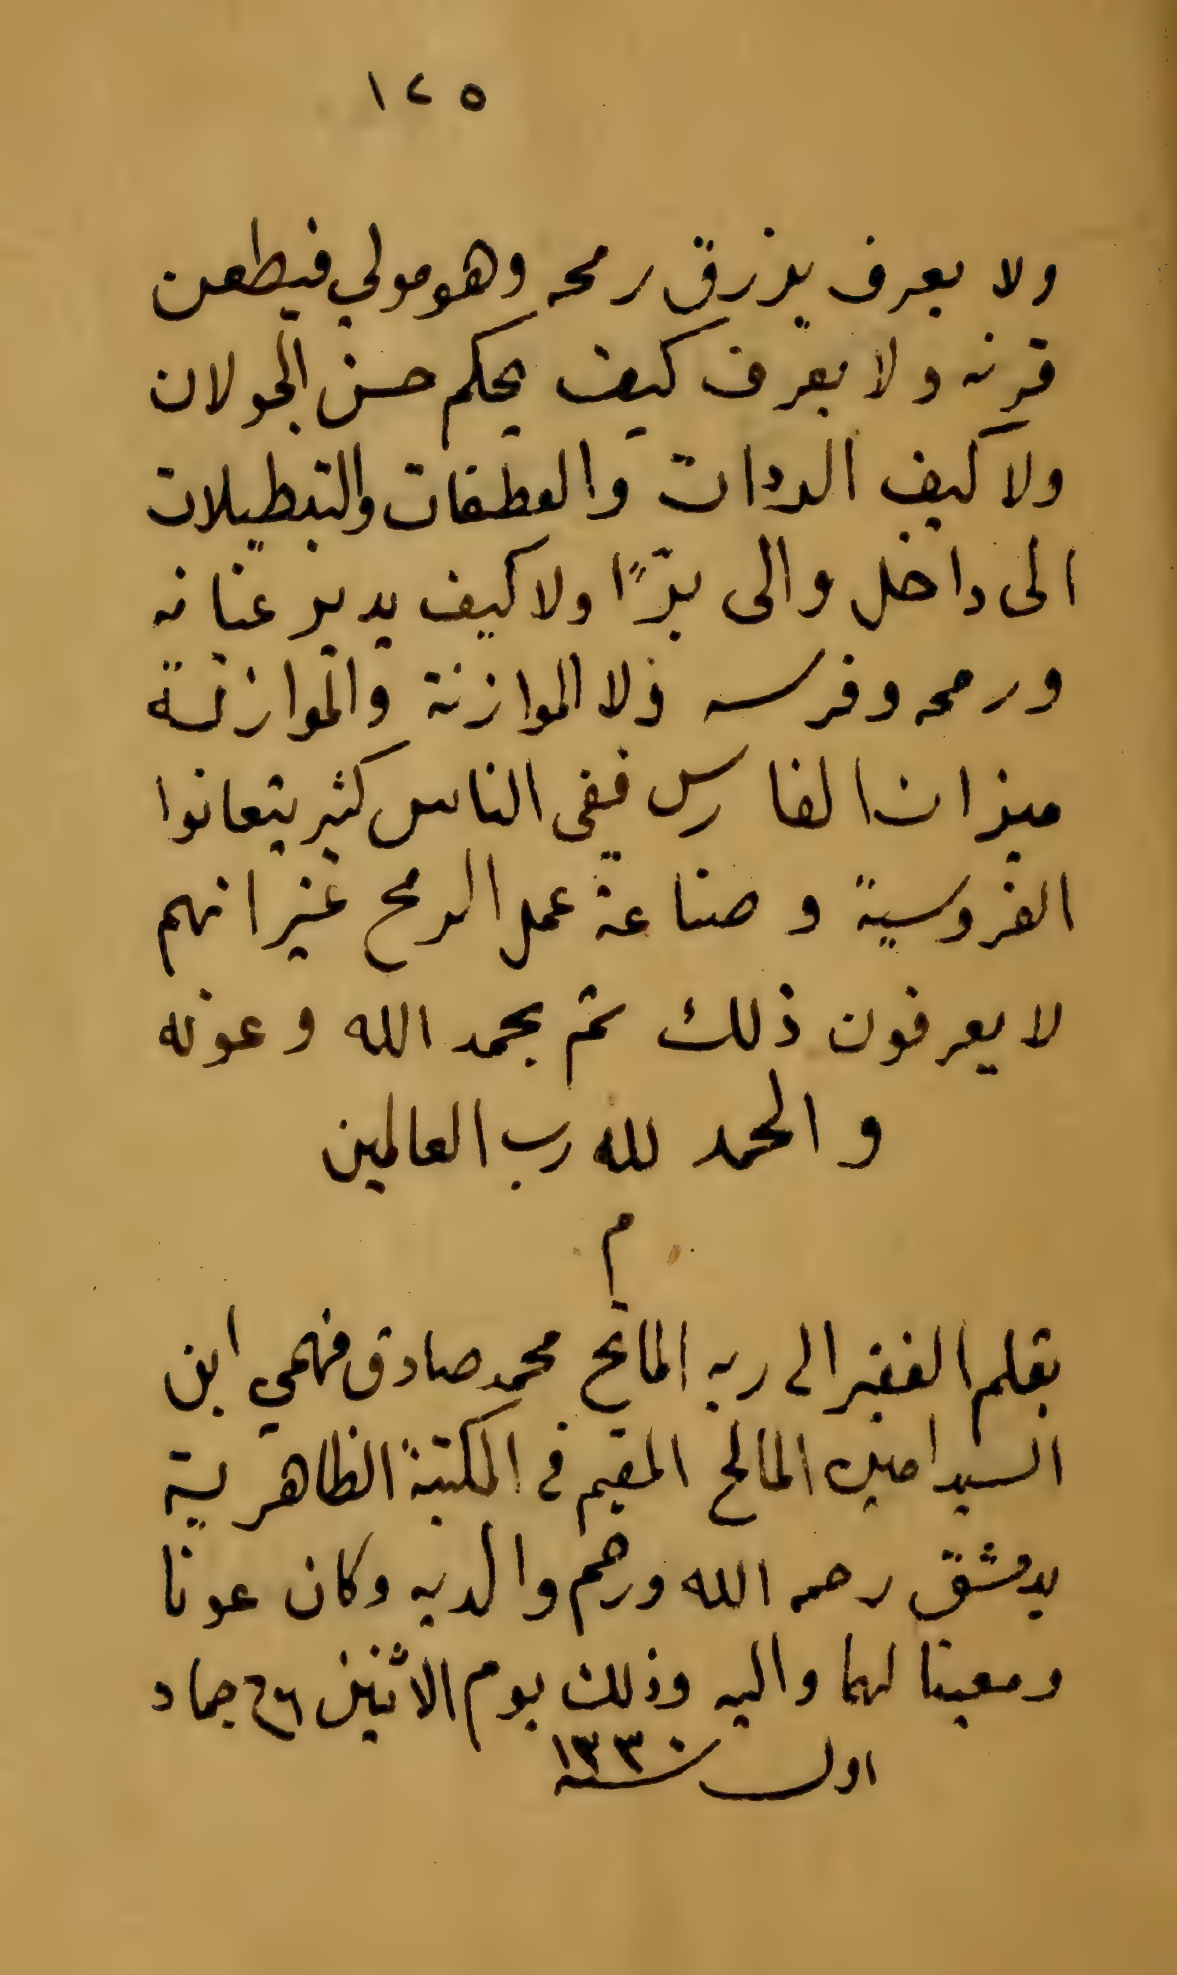 ١٢٥
ولا يعرف يزرق رمحه وهو مولي فيطعن
قرنه ولا يعرف كيف يحكم حسن الجولان
ولا كيف الردات والعطفات والتبطيلات
الى داخل والى برًّا ولا كيف يدير عنانه
ورمحه وفرسه ولا الموازنة والموازنة
ميزان الفارس ففى الناس كثير يتعانوا
الفروسية وصناعة عمل الرمح غير انهم
لا يعرفون ذلك تم بحمد الله وعونه
والحمد لله رب العالمين
م
بقلم الفقير الى ربه المانح محمد صادق فهمي ابن
السيد امين المالح المقيم في المكتبة الظاهرية
بدمشق رحمه الله ورحم والديه وكان عونا
ومعينا لهما واليه وذلك يوم الاثنين ٢٦ جماد
اول سنة ١٣٣٠